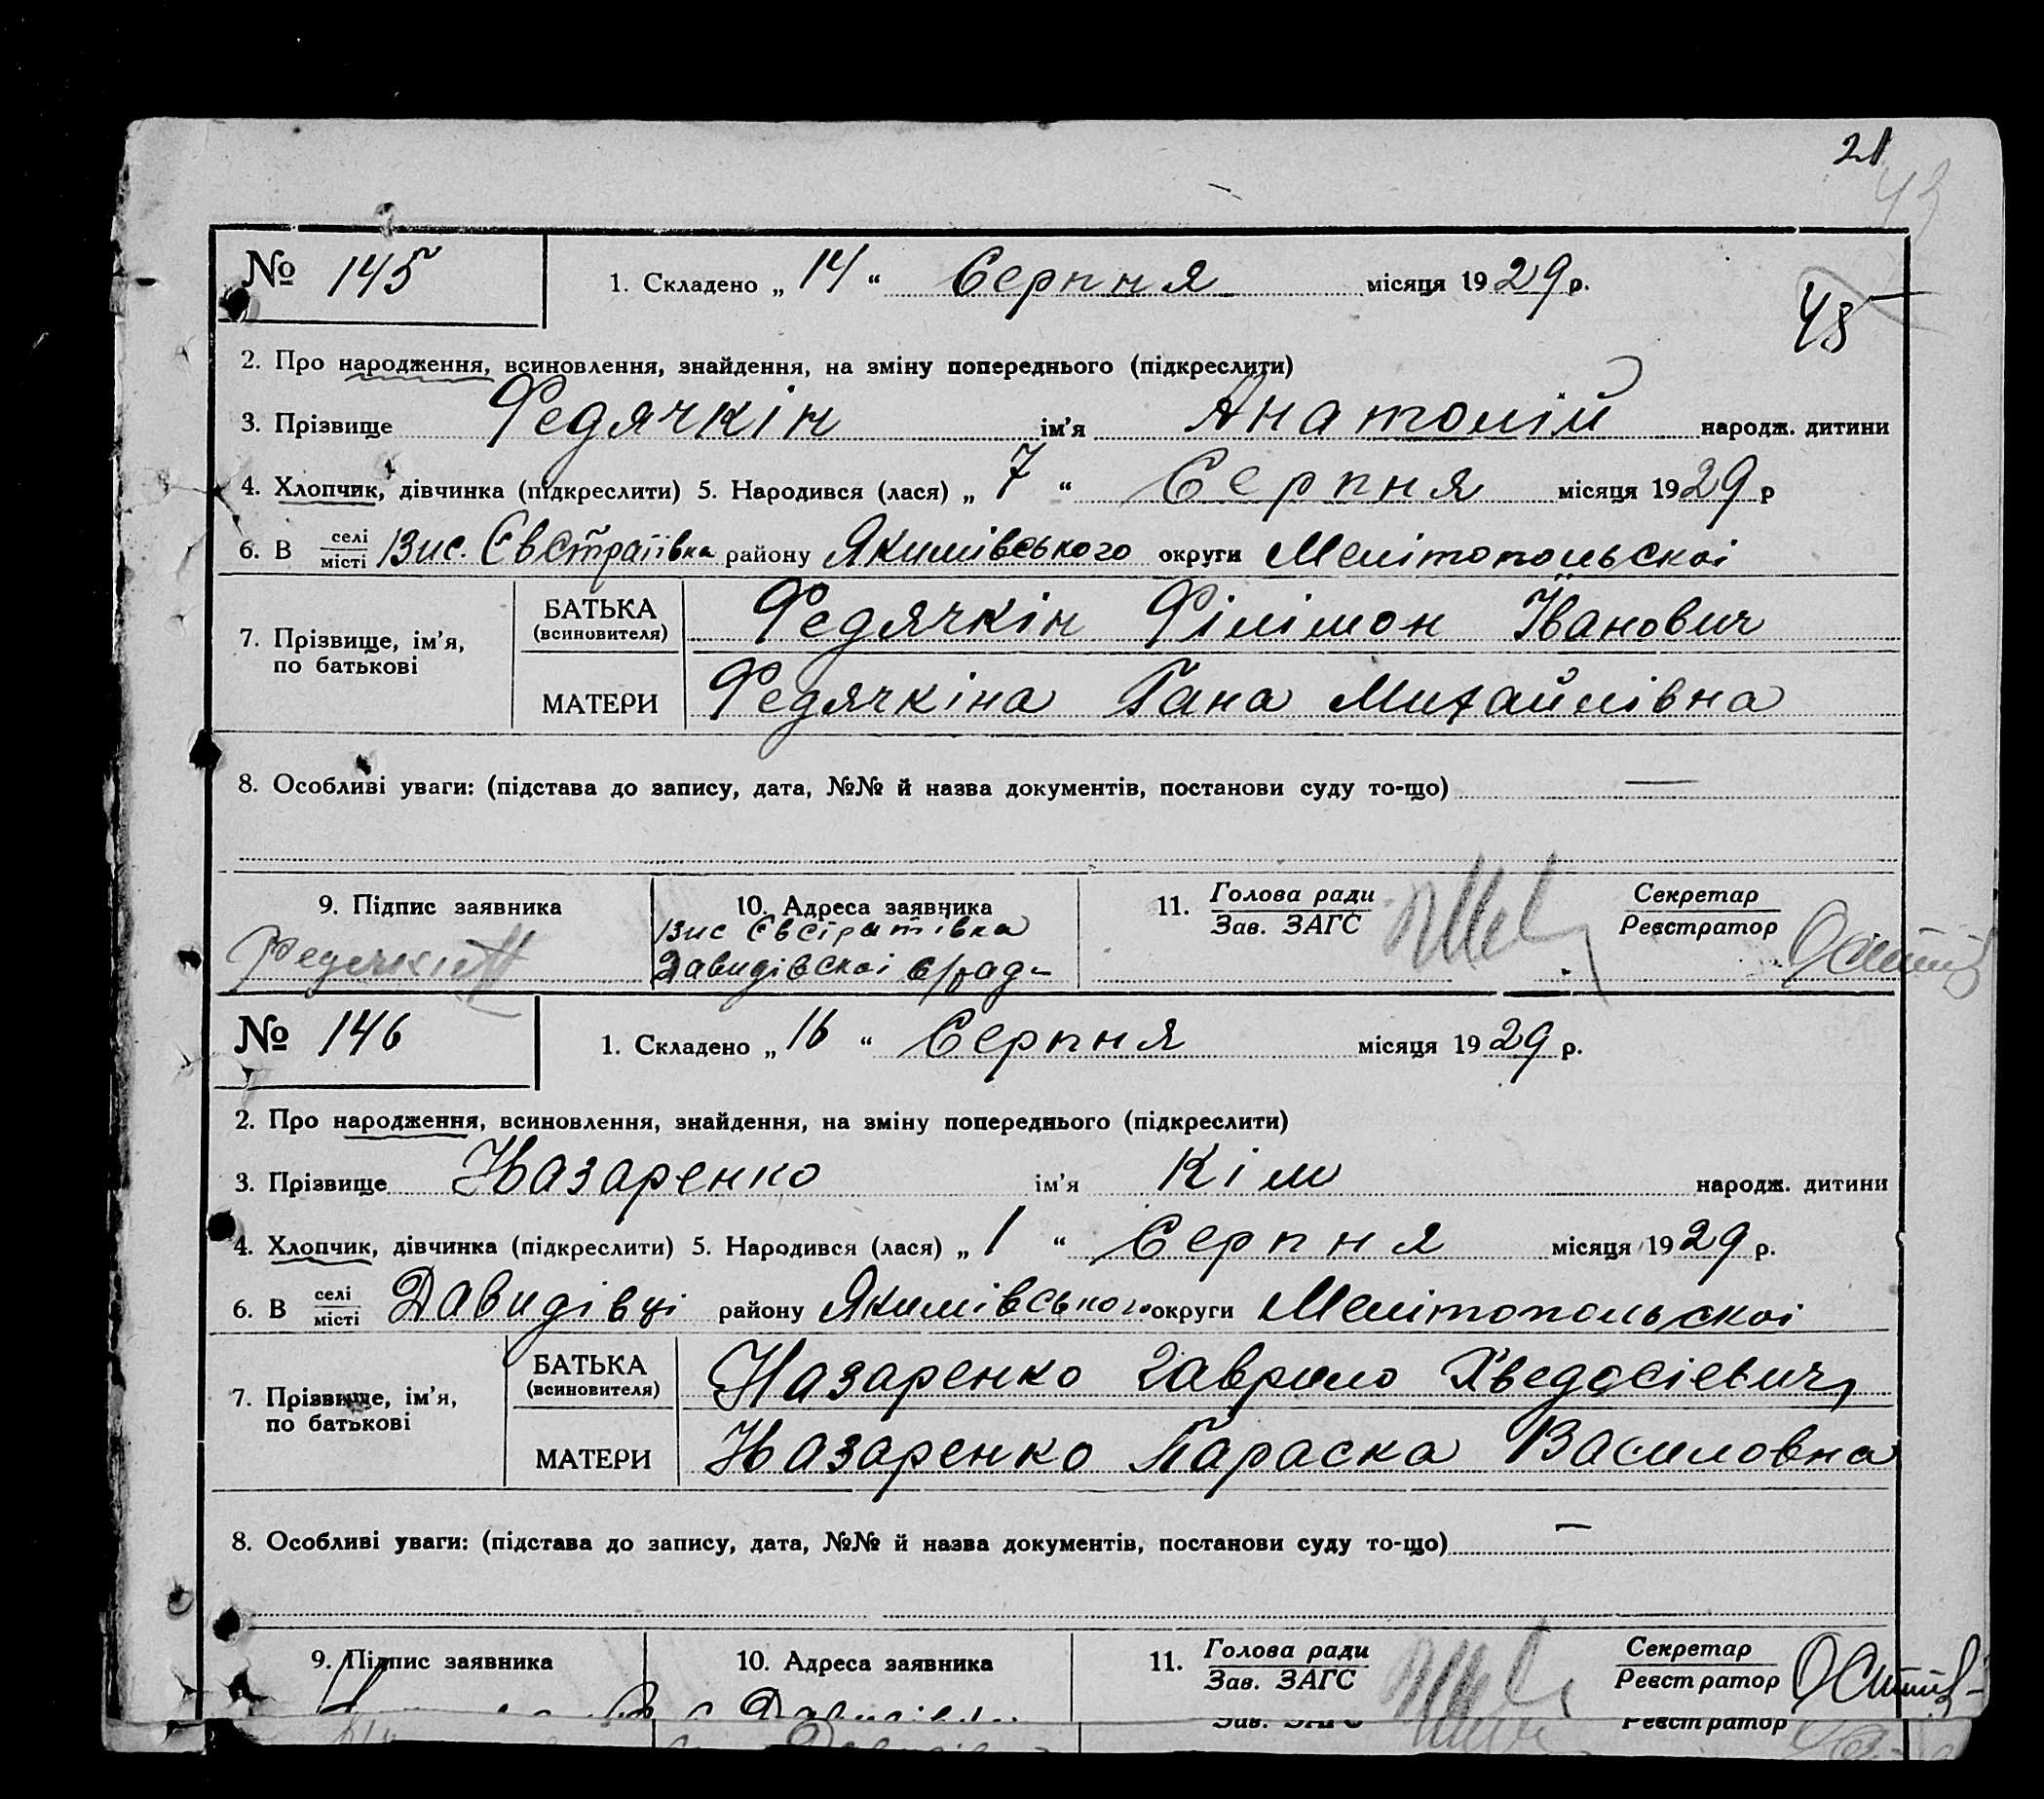 21
43
№ 145 1. Складено „ 14 “ Серпня місяця 1929 р.
45
2. Про народження, всиновлення, знайдення, на зміну попереднього (підкреслити)
3. Прізвище Федячкін ім'я Анатолій народж. дитини
4. Хлопчик, дівчинка (підкреслити) 5. Народився (лася) „ 7 “ Серпня місяця 1929 р
6. В селі місті Вис. Євстраіївка району Якимівського округи Мелітопольскоі
7. Прізвище, ім'я, по батькові
БАТЬКА (всиновителя) Федячкін Філімон Іванович
МАТЕРИ Федячкіна Гана Михайлівна
8. Особливі уваги: (підстава до запису, дата, №№ й назва документів, постанови суду то-що) —
9. Підпис заявника 10. Адреса заявника 11. Голова ради Секретар
Зав. ЗАГС Реєстратор
Федячкин Вис Євстратівка
Давидівскоі с/рад-
№ 146 1. Складено „ 16 “ Серпня місяця 1929 р.
2. Про народження, всиновлення, знайдення, на зміну попереднього (підкреслити)
3. Прізвище Назаренко ім'я Кім народж. дитини
4. Хлопчик, дівчинка (підкреслити) 5. Народився (лася) „ 1 “ Серпня місяця 1929 р.
6. В селі місті Давидівці району Якимівського округи Мелітопольскоі
7. Прізвище, ім'я, по батькові
БАТЬКА (всиновителя) Назаренко Гаврило Хведосіевич
МАТЕРИ Назаренко Параска Василовна
8. Особливі уваги: (підстава до запису, дата, №№ й назва документів, постанови суду то-що) —
9. Підпис заявника 10. Адреса заявника 11. Голова ради Секретар
Зав. ЗАГС Реєстратор
Зав. ЗАГС Реєстратор